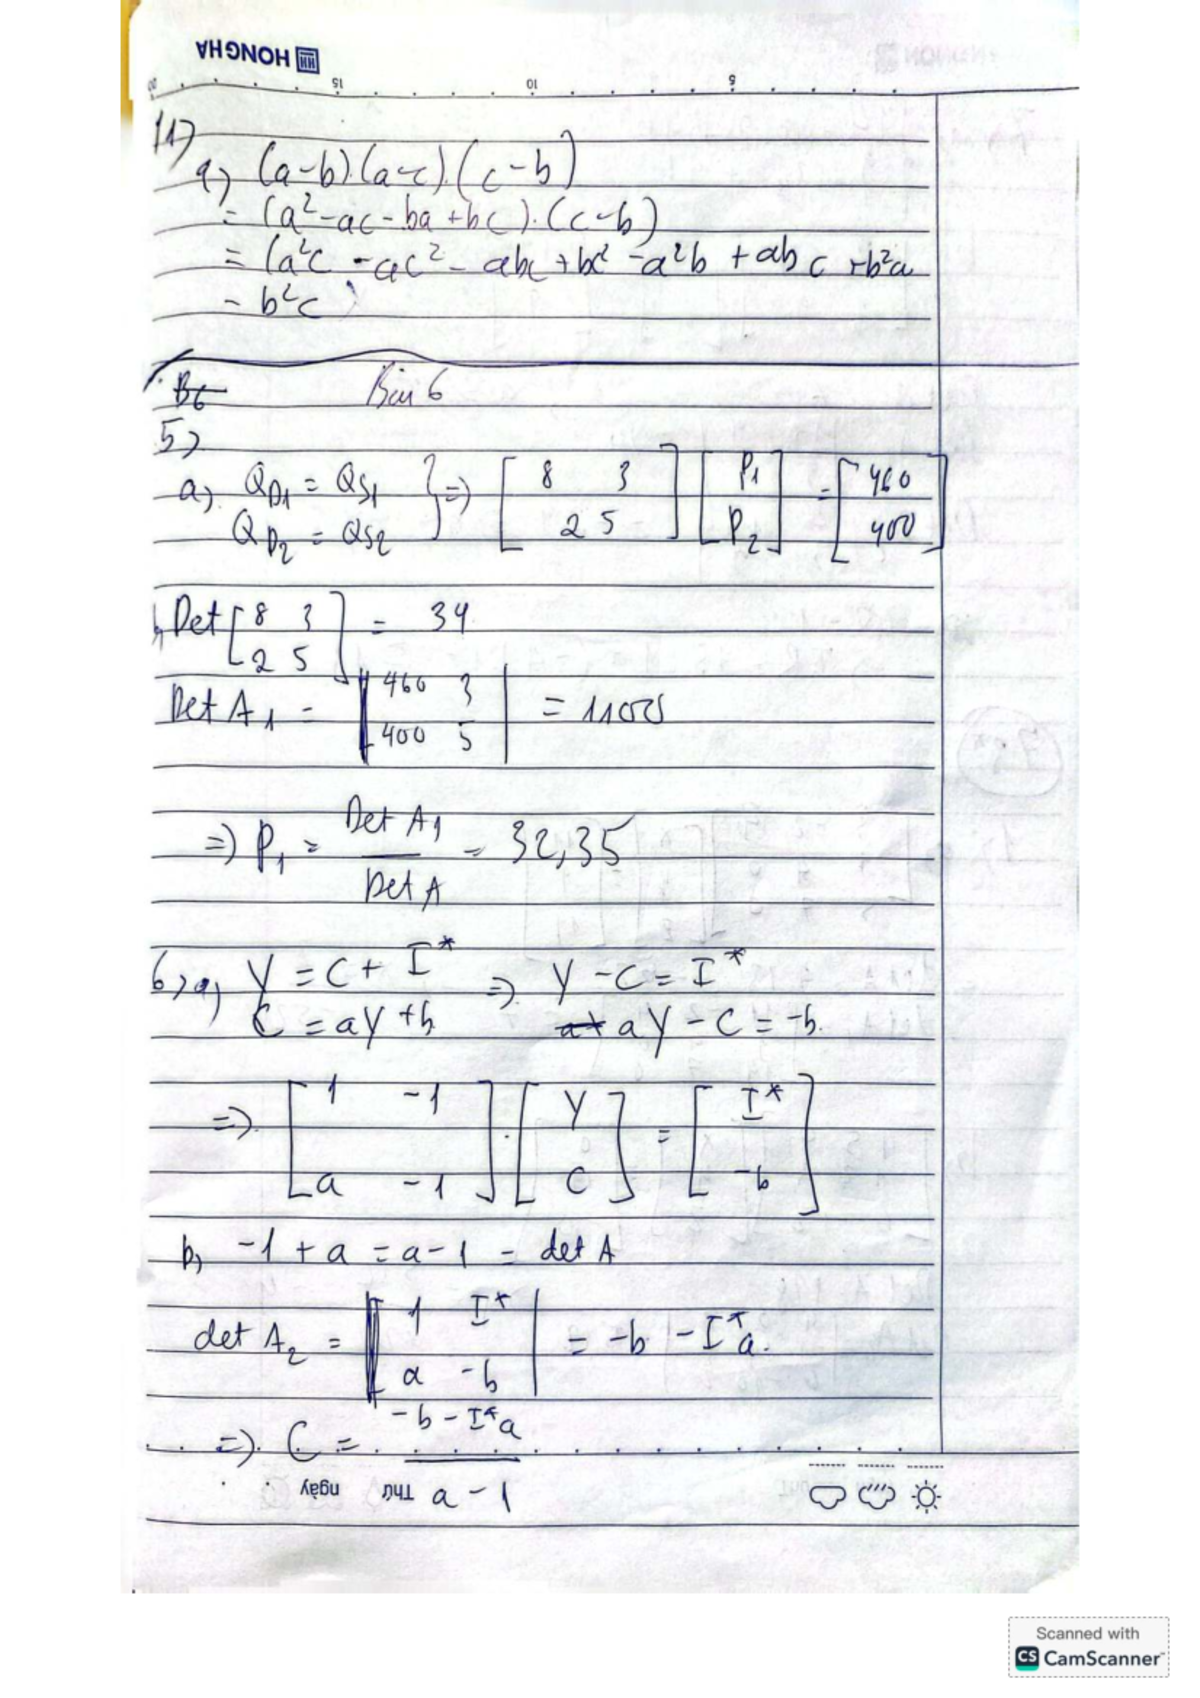 HONG HA
20 15 10 5
11)
a) (a-b).(a-c).(c-b)
= (a²-ac-ba+bc).(c-b)
= (a²c -ac² - abc + bc² - a²b + abc + b²a
- b²c)
B6 Bài 6
5)
a) Q_D1 = Q_S1
Q_D2 = Q_S2 } => [8 3; 2 5] [P1; P2] = [460; 400]
b, Det [8 3; 2 5] = 34
Det A1 = |460 3; 400 5| = 1100
=> P1 = Det A1 / Det A = 32,35
6) a) Y = C + I* => Y - C = I*
C = aY + b aY - C = -b.
=> [1 -1; a -1] . [Y; C] = [I*; -b]
b, -1 + a = a - 1 = det A
det A2 = |1 I*; a -b| = -b - I*a.
=> C = -b - I*a / a - 1
ngày Thứ
Scanned with
CS CamScanner